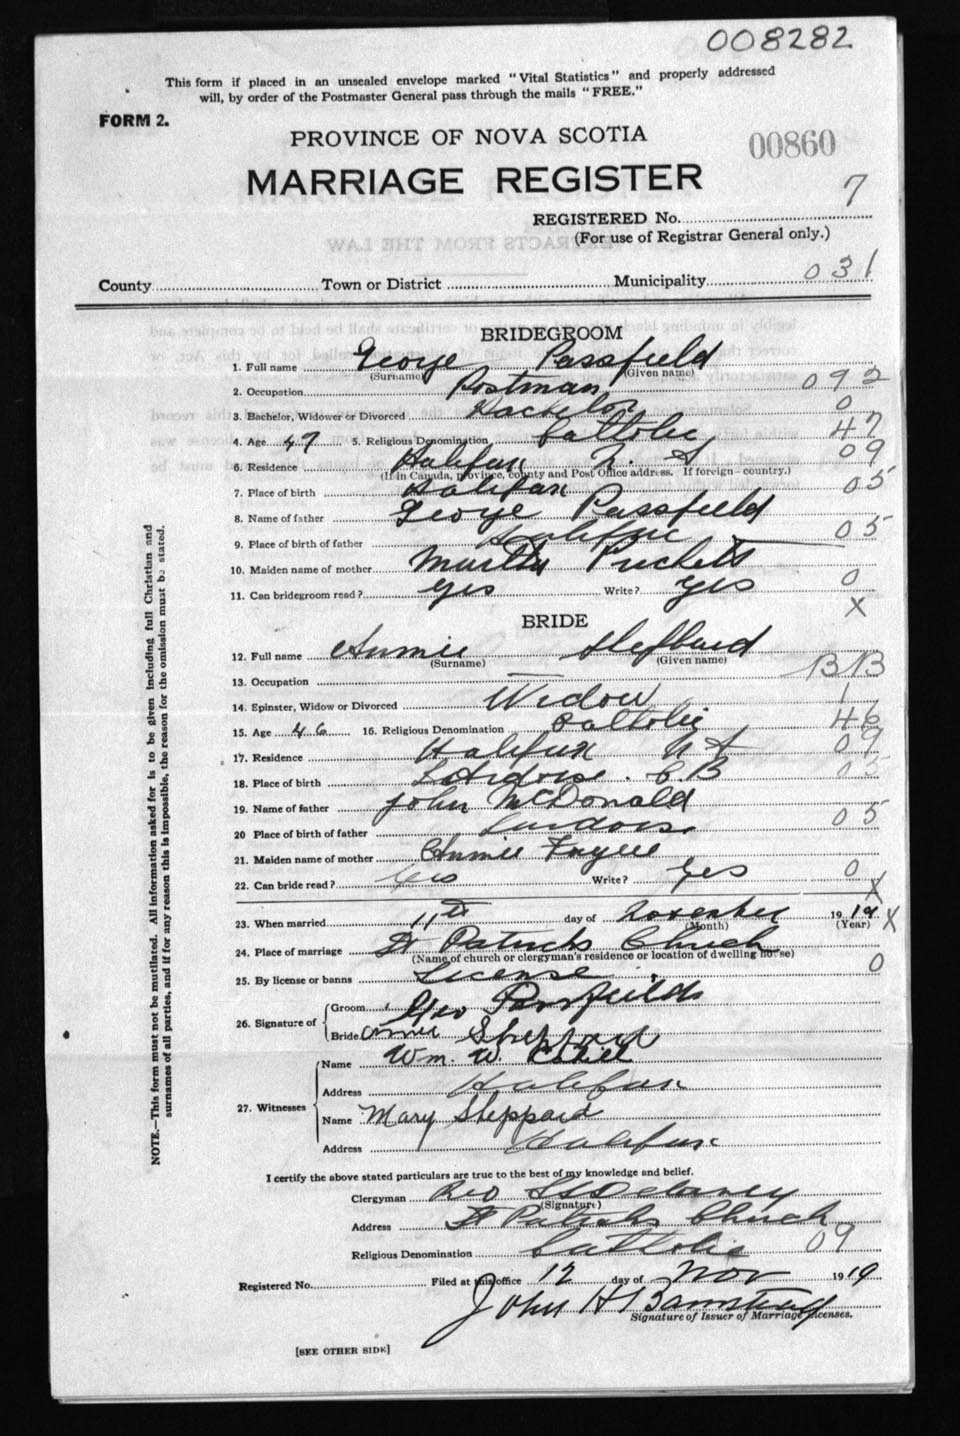 008282
This form if placed in an unsealed envelope marked "Vital Statistics" and properly addressed
will, by order of the Postmaster General pass through the mails "FREE."
FORM 2.
PROVINCE OF NOVA SCOTIA
00860
MARRIAGE REGISTER
7
REGISTERED No.
(For use of Registrar General only.)
County Town or District Municipality 031
BRIDEGROOM
1. Full name George Passfield
(Surname) (Given name)
2. Occupation Postman 092
3. Bachelor, Widower or Divorced Bachelor 0
4. Age 47 5. Religious Denomination Catholic 47
6. Residence Halifax N. S 09
(If in Canada, province, county and Post Office address. If foreign - country.)
7. Place of birth Halifax 05
8. Name of father George Passfield
9. Place of birth of father Halifax 05
10. Maiden name of mother Martha
11. Can bridegroom read? Yes Write? Yes 0
X
BRIDE
12. Full name Annie Sheppard
(Surname) (Given name)
13. Occupation — BB
14. Spinster, Widow or Divorced Widow 1
15. Age 46 16. Religious Denomination Catholic 46
17. Residence Halifax N S 09
18. Place of birth L'Ardoise. C.B 05
19. Name of father John McDonald
20 Place of birth of father 05
21. Maiden name of mother Annie
22. Can bride read? Yes Write? Yes 0
X
23. When married 11th day of November 1919 X
(Month) (Year)
24. Place of marriage St Patricks Church
(Name of church or clergyman's residence or location of dwelling house)
25. By license or banns License 0
26. Signature of Groom Geo Passfield
Bride Annie Sheppard
27. Witnesses Name Wm. W
Address Halifax
Name Mary Sheppard
Address Halifax
I certify the above stated particulars are true to the best of my knowledge and belief.
Clergyman Rev Delaney
(Signature)
Address St Patricks Church
Religious Denomination Catholic 09
Registered No. Filed at this office 12 day of Nov 1919
John H
Signature of Issuer of Marriage Licenses.
[SEE OTHER SIDE]
NOTE.—This form must not be mutilated. All information asked for is to be given including full Christian and
surnames of all parties, and if for any reason this is impossible, the reason for the omission must be stated.